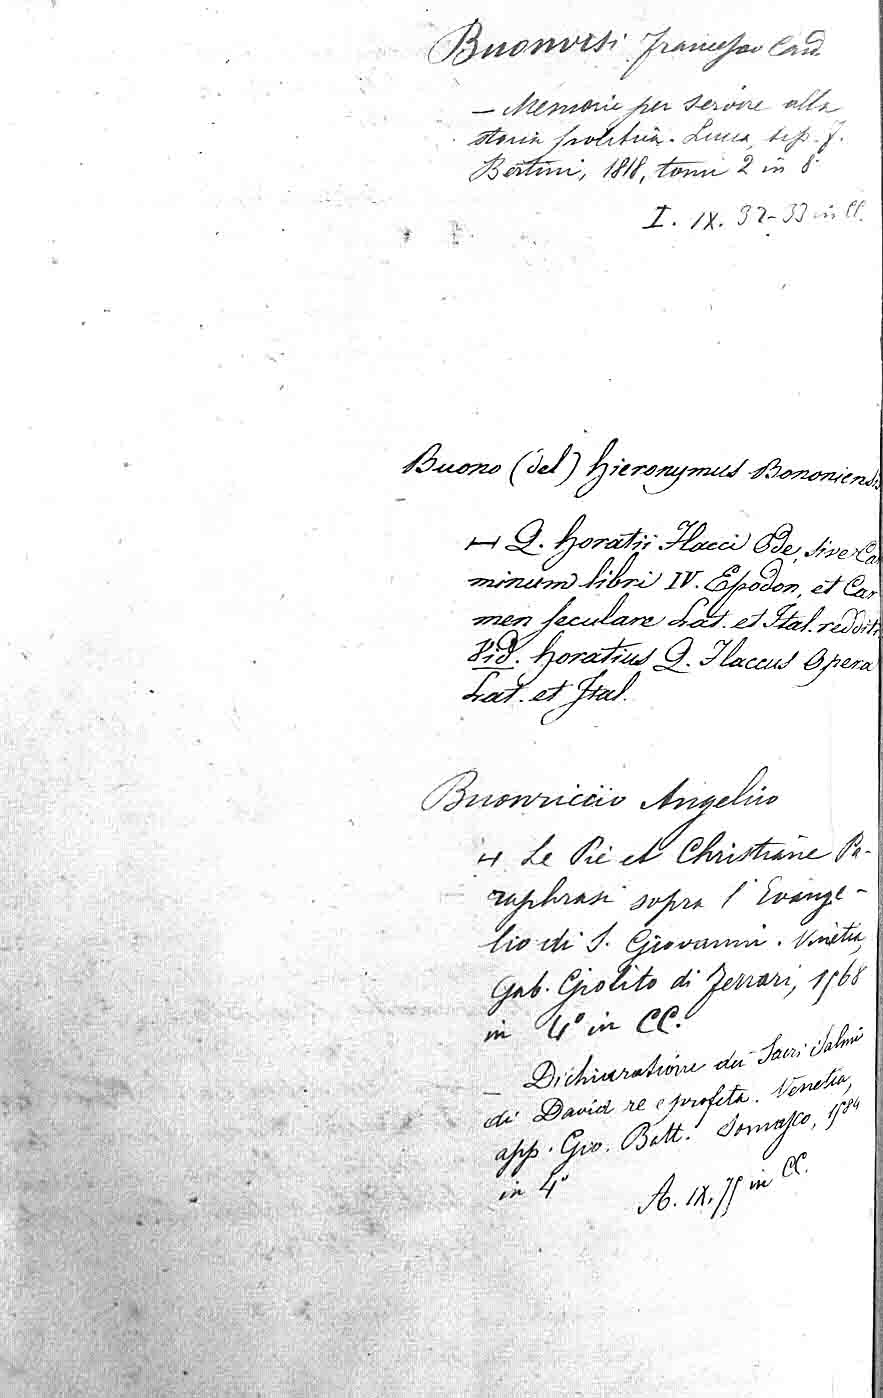 Buonvisi Francesco Card.
— Memorie per servire alla
storia politica. Lucca, tip. F.
Bertini, 1818, tomi 2 in 8°
I. IX. 32-33 in CC.
Buono (del) Hieronymus Bononiensis
Q. Horatii Flacci Odę, sive Car
minum libri IV. Epodon, et Car
men seculare Lat. et Ital. redditi
Vid. Horatius Q. Flaccus Opera
Lat. et Ital.
Buonriccio Angelico
Le Pie et Christiane Pa-
raphrasi sopra l'Evange-
lio di S. Giovanni. Vinetia,
Gab. Giolito di Ferrari, 1568
in 4° in CC.
— Dichiaratione dei Sacri Salmi
di David re e profeta. Venetia,
app. Gio. Batt. Somasco, 1584
in 4°
A. IX. 75 in CC.